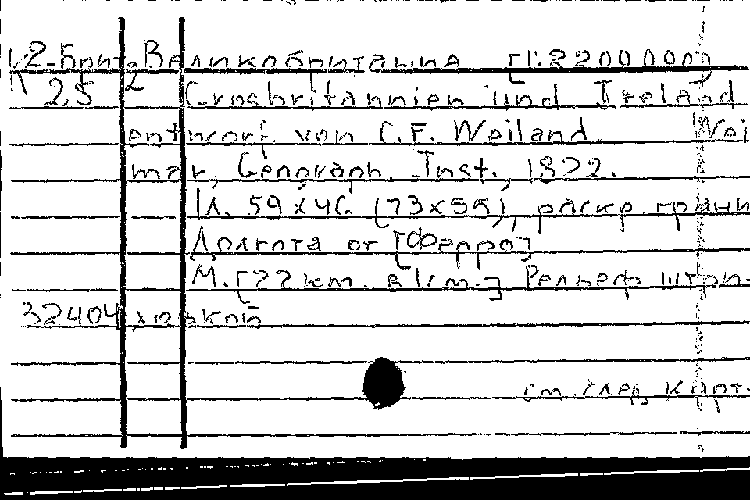 К2-Брит. Великобритания [1:2200000]
25 2 Grosbritannien und Ireland
entworf. von C.F. Weiland. Wei
mar, Geograph. Inst., 1822.
1 л. 59х46 (73х55), раскр грани
Долгота от [Ферро]
М. [22 км. в 1 см.] Рельеф штри-
32404 ховкой
см. след. карт.